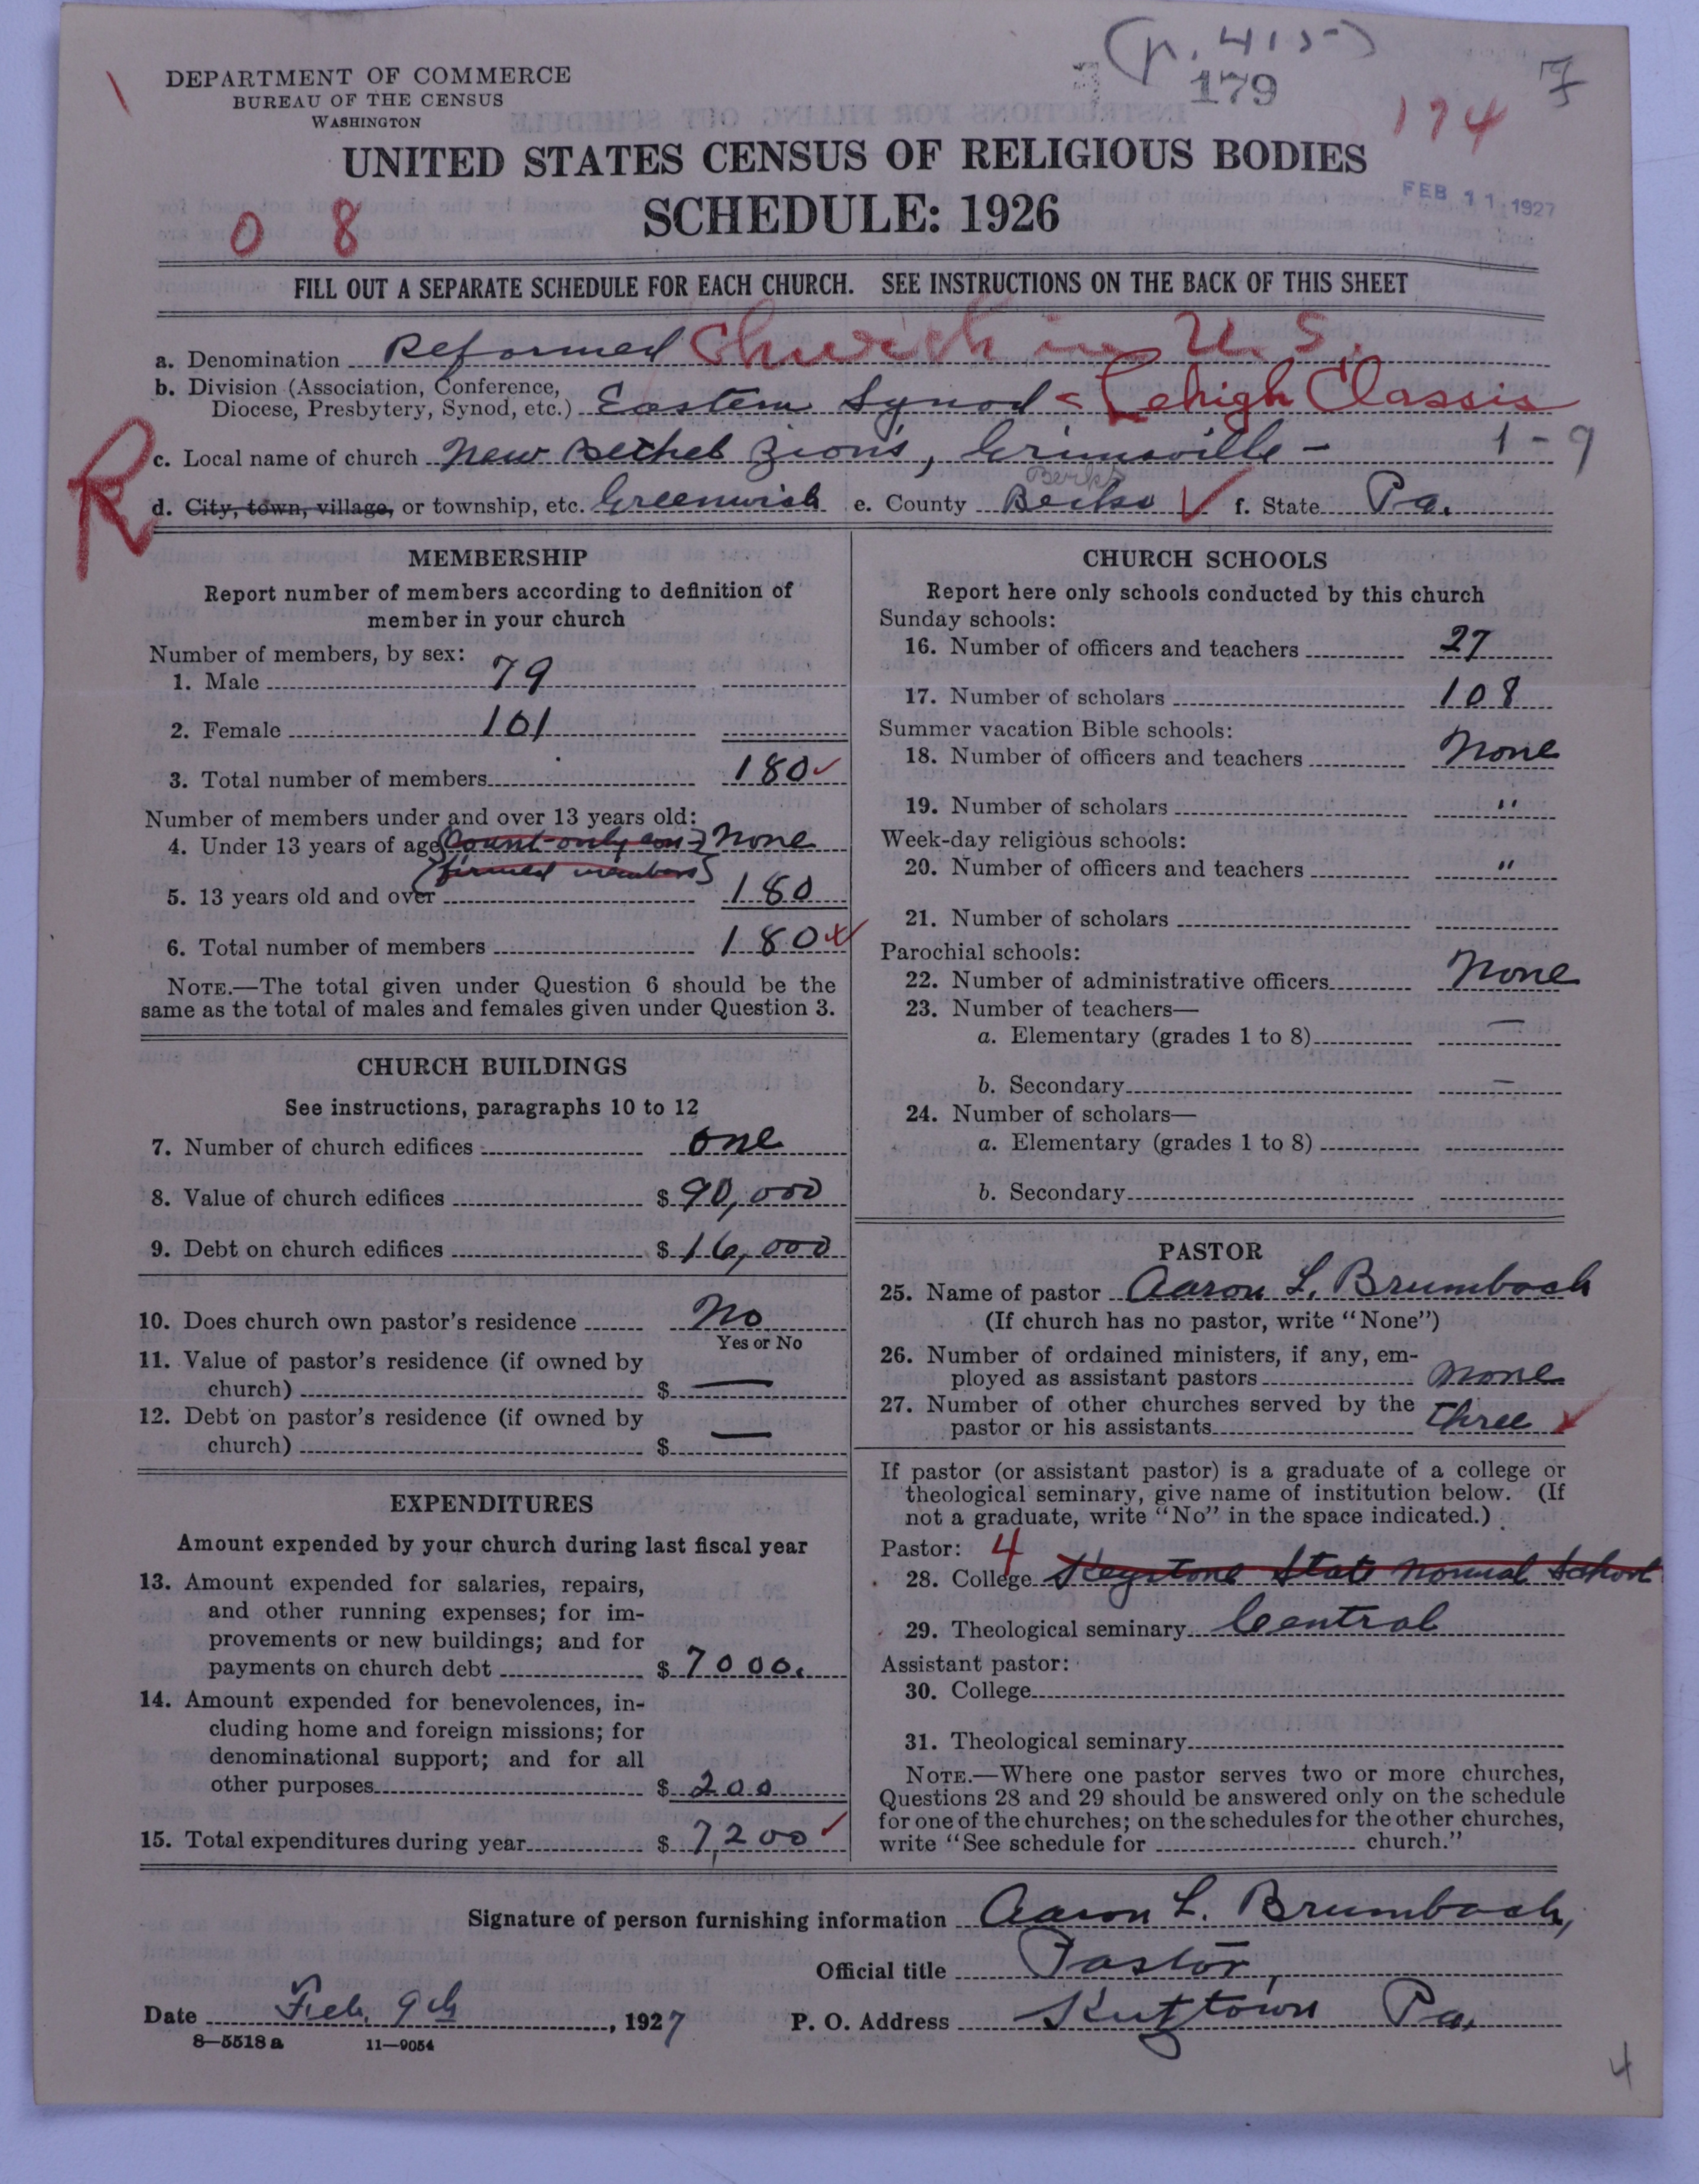 (p. 415)
179
7
174
DEPARTMENT OF COMMERCE
BUREAU OF THE CENSUS
WASHINGTON
UNITED STATES CENSUS OF RELIGIOUS BODIES
SCHEDULE: 1926
FEB 11 1927
0 8
FILL OUT A SEPARATE SCHEDULE FOR EACH CHURCH. SEE INSTRUCTIONS ON THE BACK OF THIS SHEET
a. Denomination Reformed Church in U. S.
b. Division (Association, Conference,
Diocese, Presbytery, Synod, etc.) Eastern Synod - Lehigh Classis
R
c. Local name of church New Bethel Zion's, Grimsville - 1-9
Berks
d. City, town, village, or township, etc. Greenwich e. County Berks f. State Pa.
MEMBERSHIP
Report number of members according to definition of
member in your church
Number of members, by sex:
1. Male 79
2. Female 101
3. Total number of members 180
Number of members under and over 13 years old:
4. Under 13 years of age (Count only con- None
firmed members)
5. 13 years old and over 180
6. Total number of members 180
NOTE.—The total given under Question 6 should be the
same as the total of males and females given under Question 3.
CHURCH BUILDINGS
See instructions, paragraphs 10 to 12
7. Number of church edifices one
8. Value of church edifices $ 90,000
9. Debt on church edifices $ 16,000
10. Does church own pastor's residence No
Yes or No
11. Value of pastor's residence (if owned by
church) $ —
12. Debt on pastor's residence (if owned by
church) $ —
EXPENDITURES
Amount expended by your church during last fiscal year
13. Amount expended for salaries, repairs,
and other running expenses; for im-
provements or new buildings; and for
payments on church debt $ 7000.
14. Amount expended for benevolences, in-
cluding home and foreign missions; for
denominational support; and for all
other purposes $ 200
15. Total expenditures during year $ 7,200
CHURCH SCHOOLS
Report here only schools conducted by this church
Sunday schools:
16. Number of officers and teachers 27
17. Number of scholars 108
Summer vacation Bible schools:
18. Number of officers and teachers None
19. Number of scholars "
Week-day religious schools:
20. Number of officers and teachers "
21. Number of scholars
Parochial schools:
22. Number of administrative officers None
23. Number of teachers—
a. Elementary (grades 1 to 8) —
b. Secondary —
24. Number of scholars—
a. Elementary (grades 1 to 8)
b. Secondary
PASTOR
25. Name of pastor Aaron L. Brumbach
(If church has no pastor, write "None")
26. Number of ordained ministers, if any, em-
ployed as assistant pastors None
27. Number of other churches served by the
pastor or his assistants three
If pastor (or assistant pastor) is a graduate of a college or
theological seminary, give name of institution below. (If
not a graduate, write "No" in the space indicated.)
Pastor: 4
28. College Keystone State Normal School
29. Theological seminary Central
Assistant pastor:
30. College
31. Theological seminary
NOTE.—Where one pastor serves two or more churches,
Questions 28 and 29 should be answered only on the schedule
for one of the churches; on the schedules for the other churches,
write "See schedule for church."
Signature of person furnishing information Aaron L. Brumbach,
Official title Pastor,
Date Feb. 9th, 1927 P. O. Address Kutztown Pa.
8—5518 a 11—9054
4